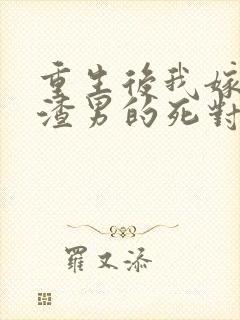 重生後我嫁
渣男的死對
羅又添